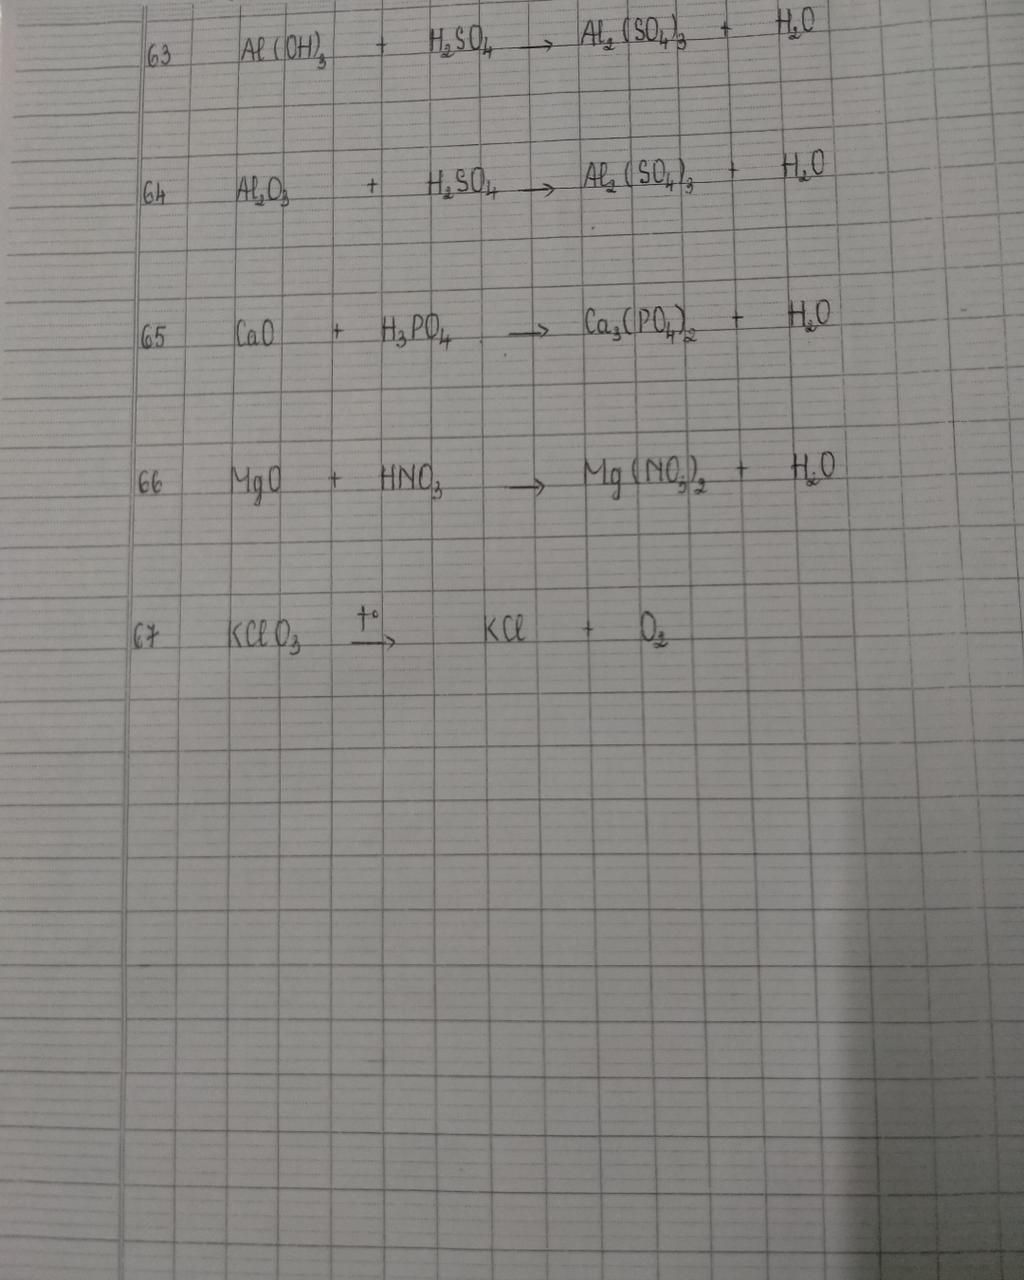 63 Al(OH)₃ + H₂SO₄ → Al₂(SO₄)₃ + H₂O
64 Al₂O₃ + H₂SO₄ → Al₂(SO₄)₃ + H₂O
65 CaO + H₃PO₄ → Ca₃(PO₄)₂ + H₂O
66 MgO + HNO₃ → Mg(NO₃)₂ + H₂O
67 KClO₃ t° → KCl + O₂